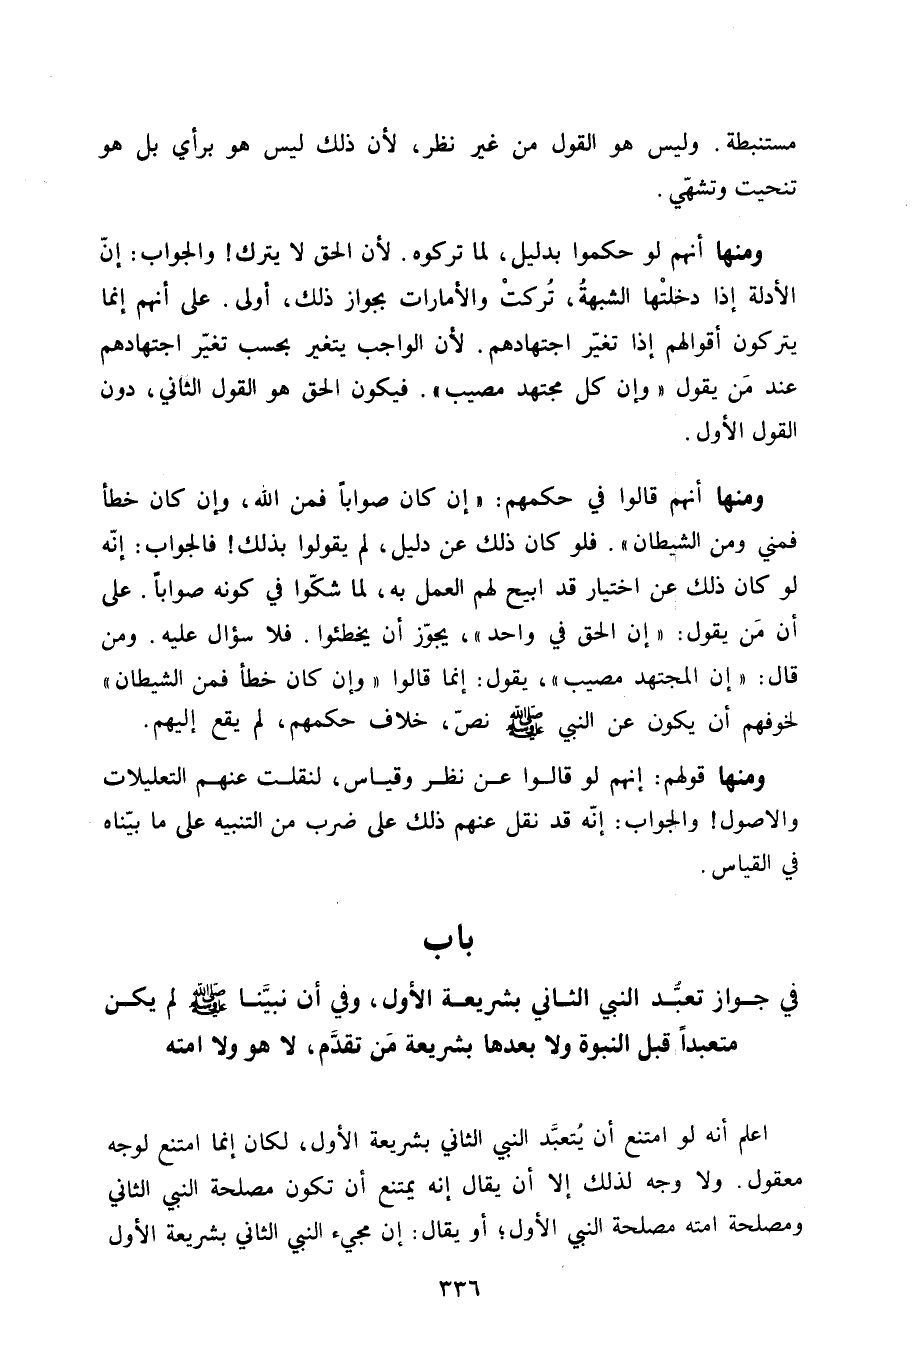 مستنبطة. وليس هو القول من غير نظر، لأن ذلك ليس هو برأي بل هو
تنحيت وتشهّي.
ومنها أنهم لو حكموا بدليل، لما تركوه. لأن الحق لا يترك! والجواب: إنّ
الأدلة إذا دخلتْها الشبهةُ، تُركتْ والأمارات بجواز ذلك، أولى. على أنهم إنما
يتركون أقوالهم إذا تغيّر اجتهادهم. لأن الواجب يتغير بحسب تغيّر اجتهادهم
عند مَن يقول «وإن كل مجتهد مصيب». فيكون الحق هو القول الثاني، دون
القول الأول.
ومنها أنهم قالوا في حكمهم: «إن كان صواباً فمن الله، وإن كان خطأ
فمني ومن الشيطان». فلو كان ذلك عن دليل، لم يقولوا بذلك! فالجواب: إنّه
لو كان ذلك عن اختيار قد ابيح لهم العمل به، لما شكّوا في كونه صواباً. على
أن مَن يقول: «إن الحق في واحد»، يجوّز أن يخطئوا. فلا سؤال عليه. ومن
قال: «إن المجتهد مصيب»، يقول: إنما قالوا «وإن كان خطأ فمن الشيطان»
لخوفهم أن يكون عن النبي ﷺ نصّ، خلاف حكمهم، لم يقع إليهم.
ومنها قولهم: إنهم لو قالوا عن نظر وقياس، لنقلت عنهم التعليلات
والاصول! والجواب: إنّه قد نقل عنهم ذلك على ضرب من التنبيه على ما بيّناه
في القياس.
باب
في جواز تعبُّد النبي الثاني بشريعة الأول، وفي أن نبيَّنا ﷺ لم يكن
متعبداً قبل النبوة ولا بعدها بشريعة مَن تقدَّم، لا هو ولا امته
اعلم أنه لو امتنع أن يُتعبَّد النبي الثاني بشريعة الأول، لكان إنما امتنع لوجه
معقول. ولا وجه لذلك إلا أن يقال إنه يمتنع أن تكون مصلحة النبي الثاني
ومصلحة امته مصلحة النبي الأول؛ أو يقال: إن مجيء النبي الثاني بشريعة الأول
٣٣٦